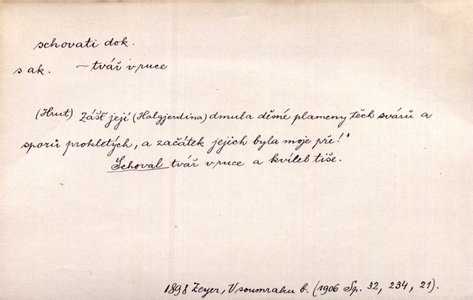 schovati dok.
s ak. ~ tvář v ruce
(Hrut) Zášť její (Halgjerdina) dmula děsné plameny těch svárů a
sporů prohletých, a začátek jejich byla moje pře!"
Schoval tvář v ruce a kvílel tiše.
1898 Zeyer, V soumraku b. (1906 Sp. 32, 234, 21).